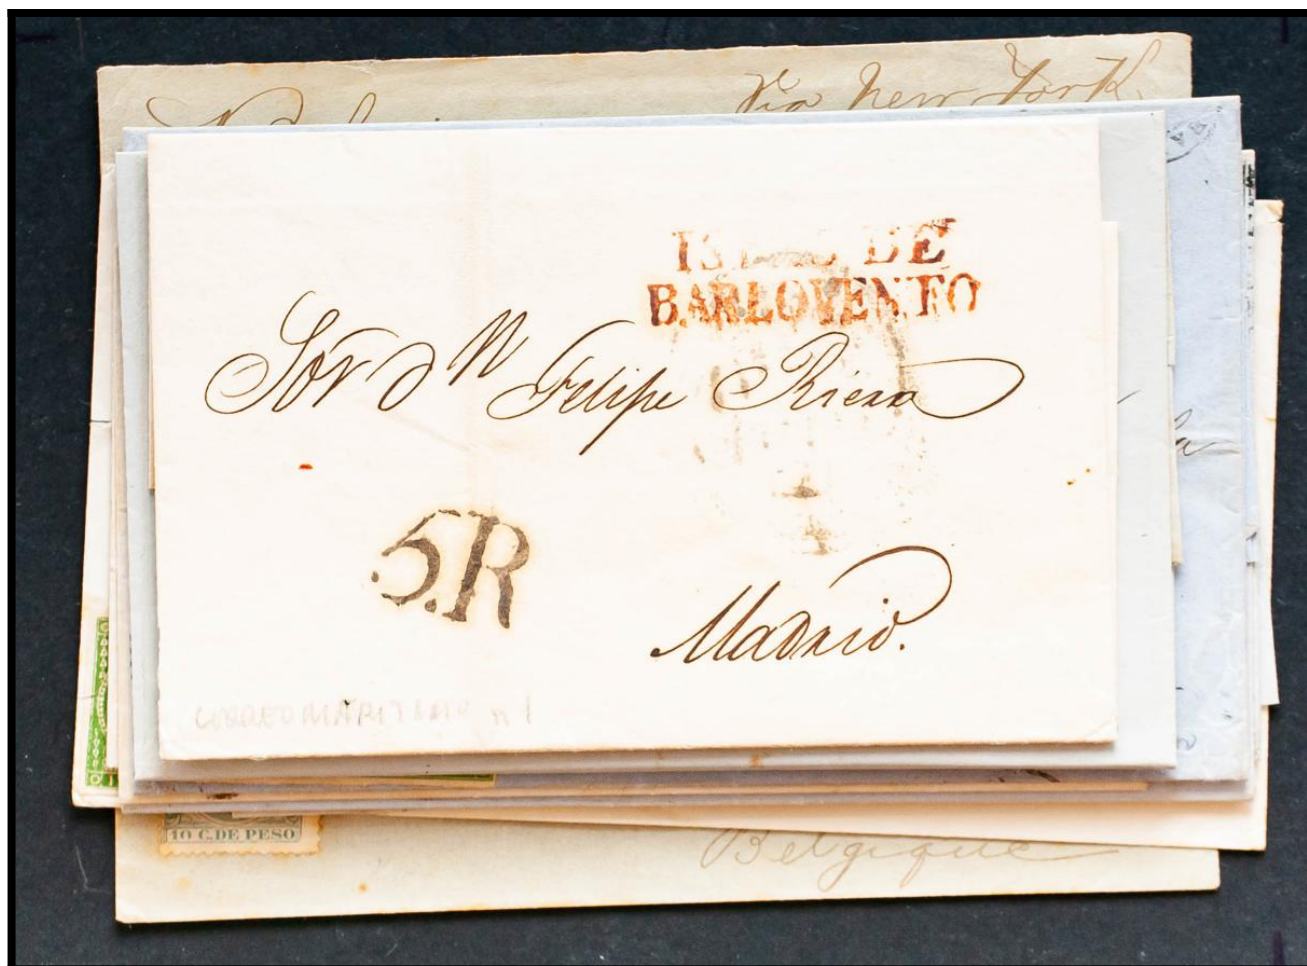 Via New York
DE
BARLOVENTO
Sor Dn Felipe Riera
5.R
Madrid.
CORREO MARITIMO n 1
10 C. DE PESO
Belgique